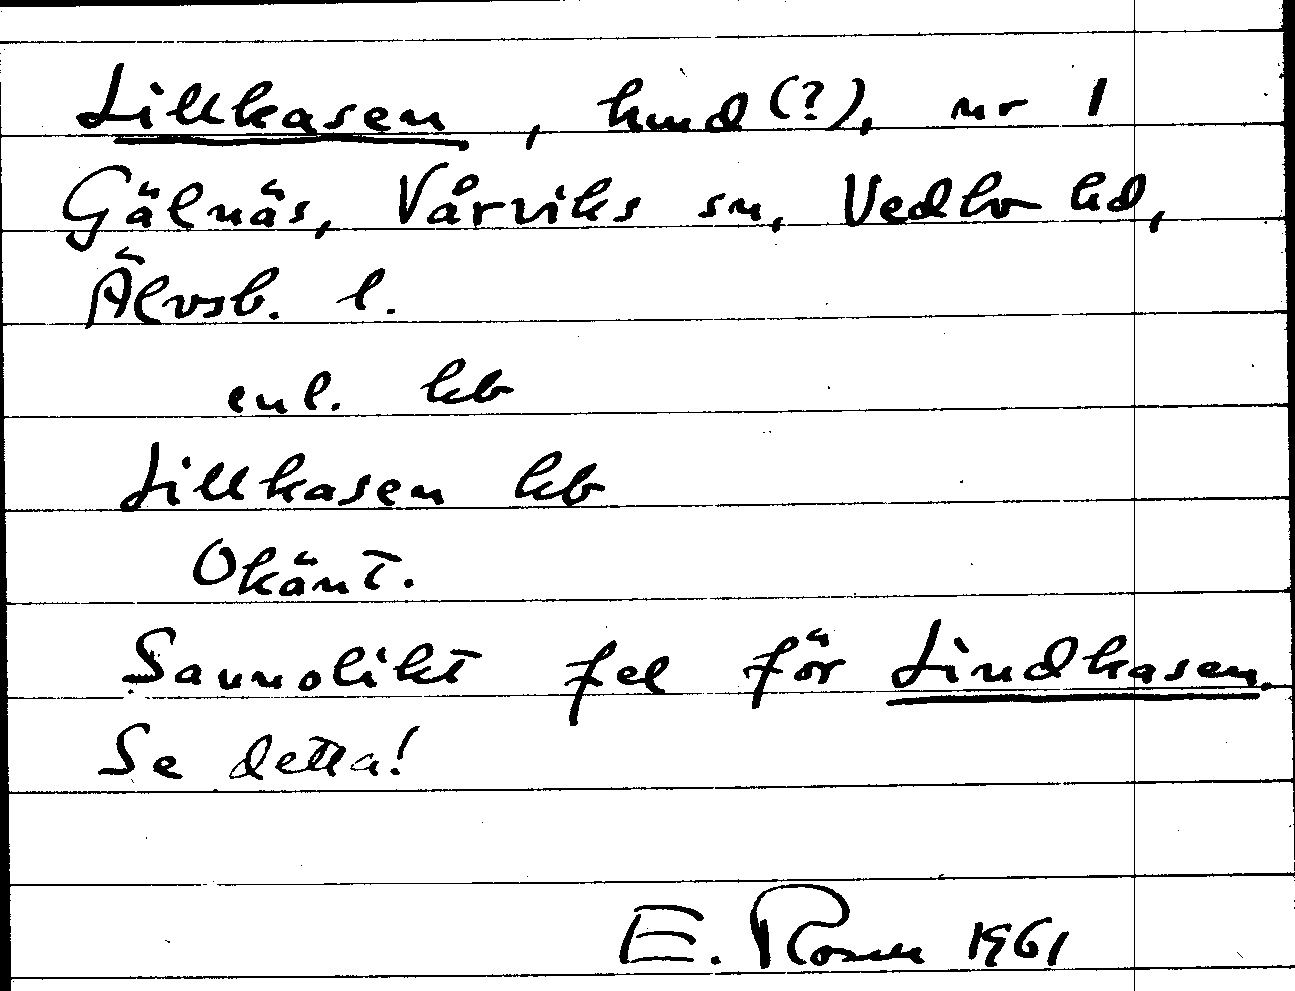 Lillkasen, hmd(?), nr 1
Gälnäs, Vårviks sn, Vedbo hd,
Älvsb. l.
enl. kb
Lillkasen kb
Okänt.
Sannolikt fel för Lindkasen.
Se detta!
E. Rosen 1961